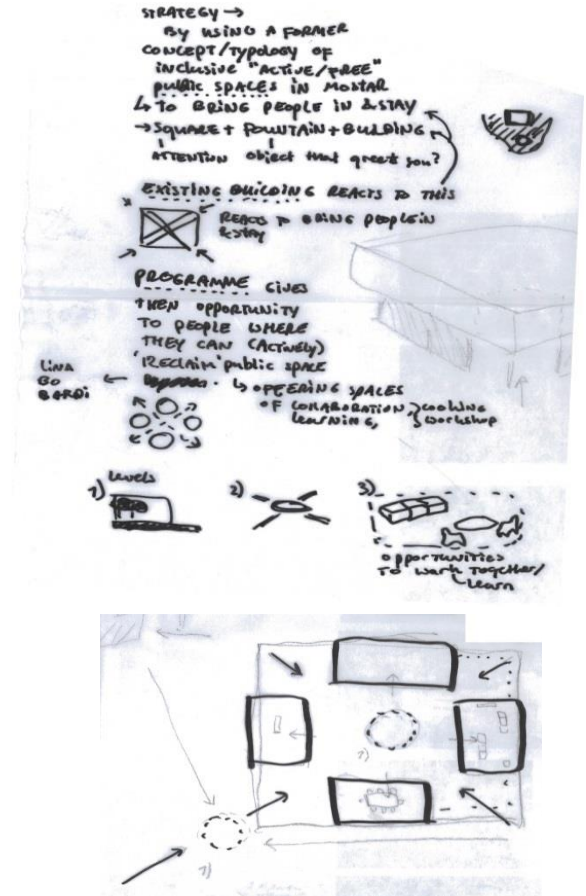 STRATEGY →
BY USING A FORMER
CONCEPT/TYPOLOGY OF
INCLUSIVE "ACTIVE/FREE"
PUBLIC SPACES IN MOSTAR
↳ TO BRING PEOPLE IN & STAY
→ SQUARE + FOUNTAIN + BUILDING
ATTENTION object that greets you?
EXISTING BUILDING REACTS TO THIS
REACTS TO BRING PEOPLE IN
& STAY
PROGRAMME GIVES
THEN OPPORTUNITY
TO PEOPLE WHERE
THEY CAN (ACTIVELY)
'RECLAIM' public space
LINA
BO
BARDI
↳ OFFERING SPACES
OF COLLABORATION, cooking
LEARNING, workshop
Levels
1) 2) 3)
opportunities
TO work Together/
Learn
1)
1)